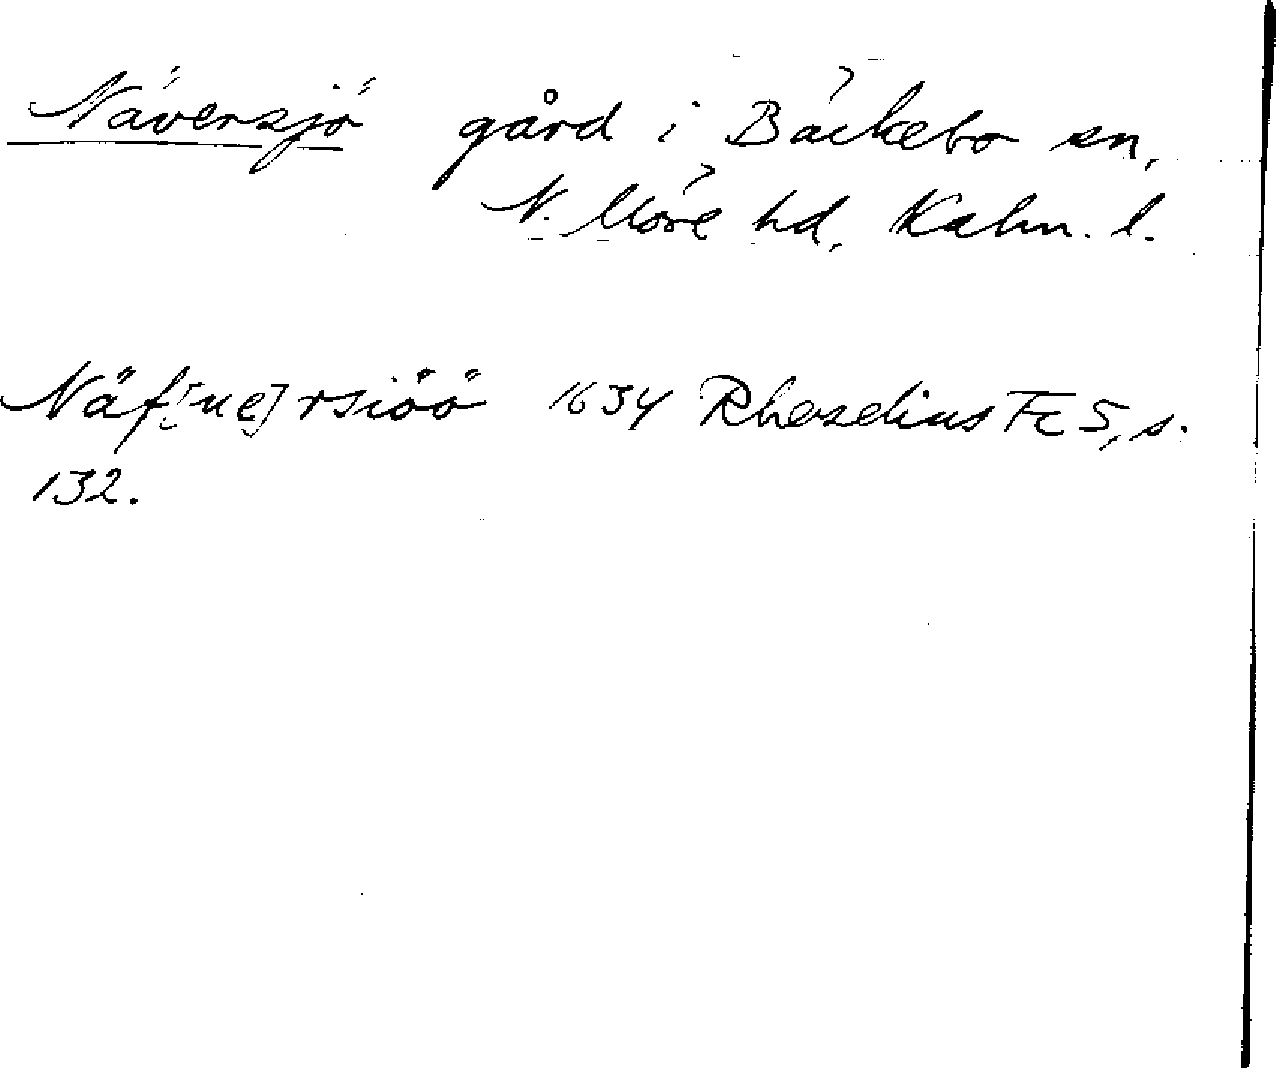 Näversjö gård i Bäckebo sn,
N. Möre hd, Kalm. l.
Näf[ue]rsiöö 1634 Rhezelius Fc 5, s.
132.